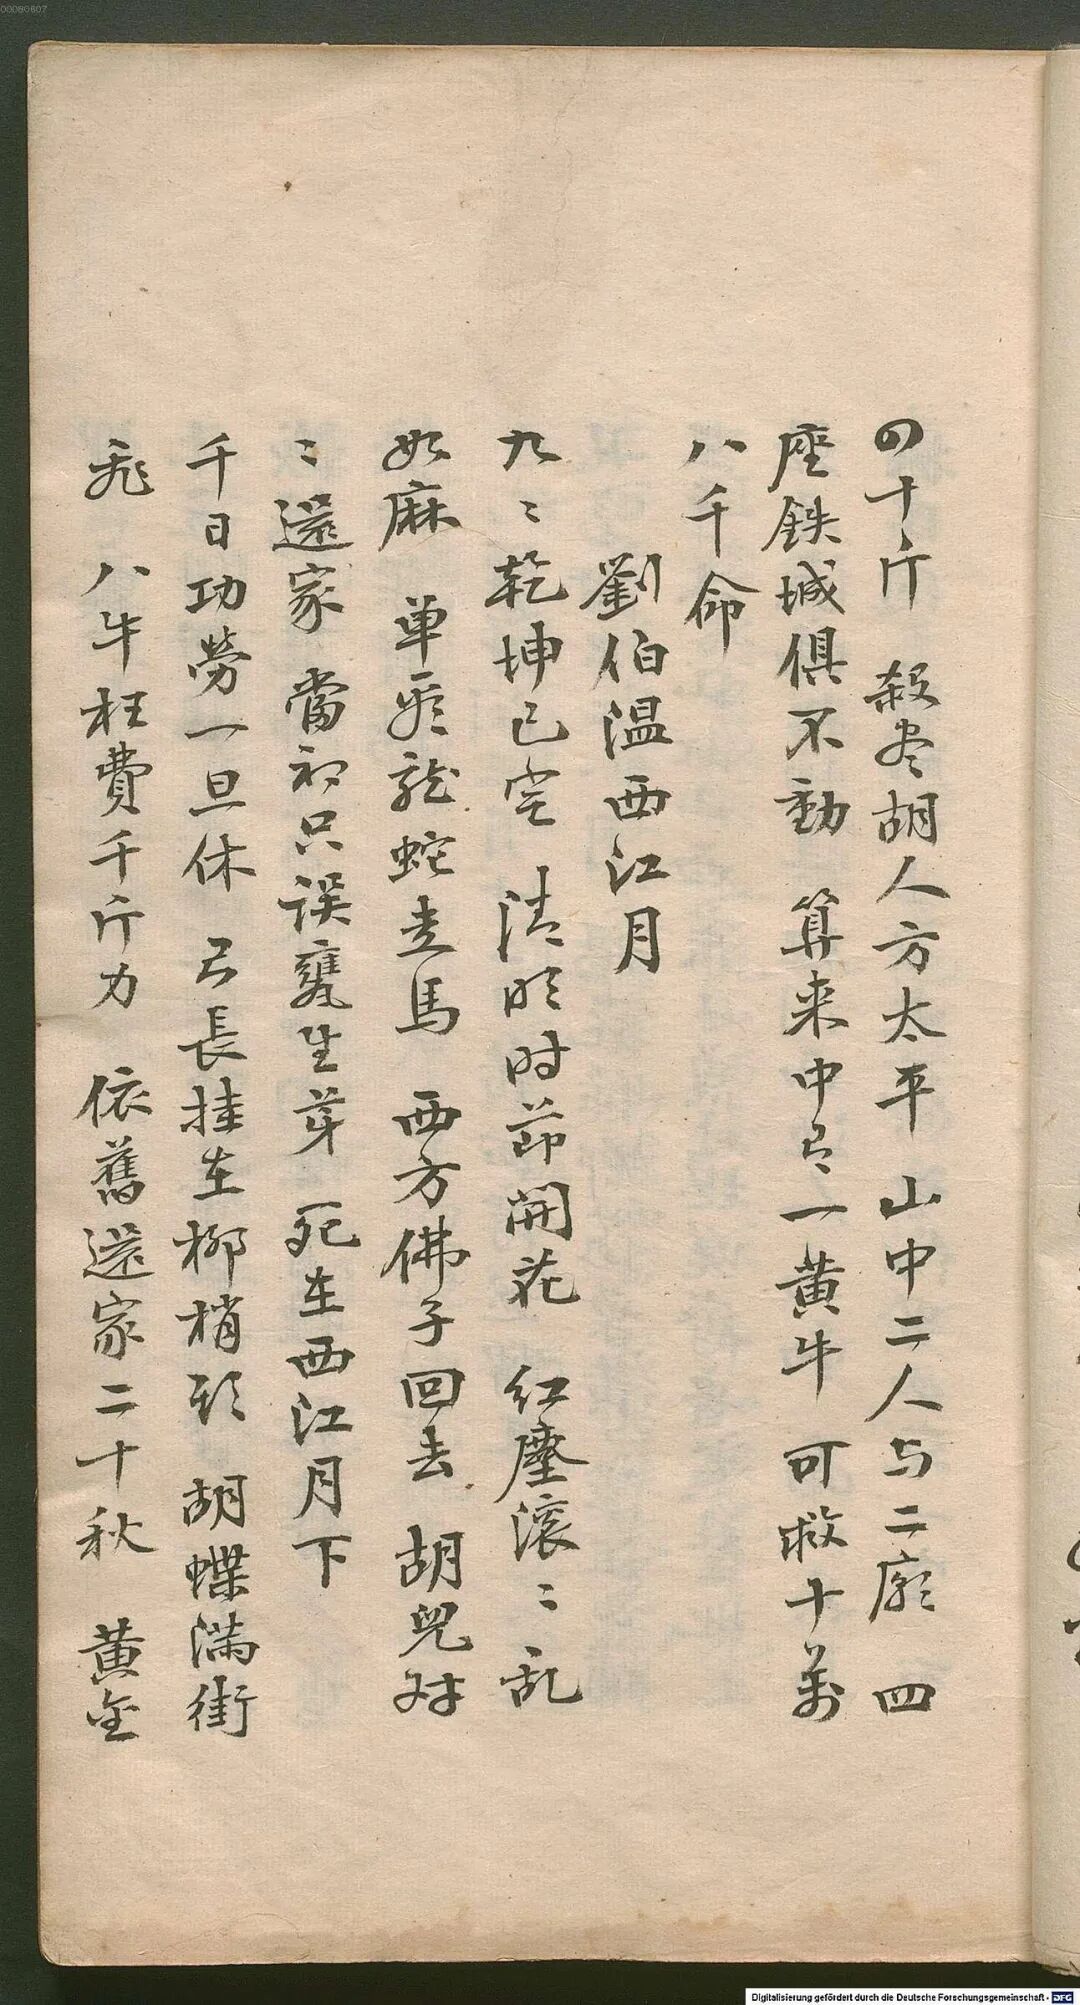 00080607
四十斤 殺尽胡人方太平 山中二人与二廟 四
座鉄城俱不動 算来中了一黄牛 可救十萬
八千命
劉伯温西江月
九〻乾坤已定 清明时節開花 红塵滚〻乱
如麻 单看龍蛇走馬 西方佛子回去 胡兒对
〻還家 當初只误甕生芽 死在西江月下
千日功勞一旦休 弓長挂在柳梢头 胡蝶滿街
飛 八牛枉費千斤力 依舊還家二十秋 黄金
Digitalisierung gefördert durch die Deutsche Forschungsgemeinschaft - DFG